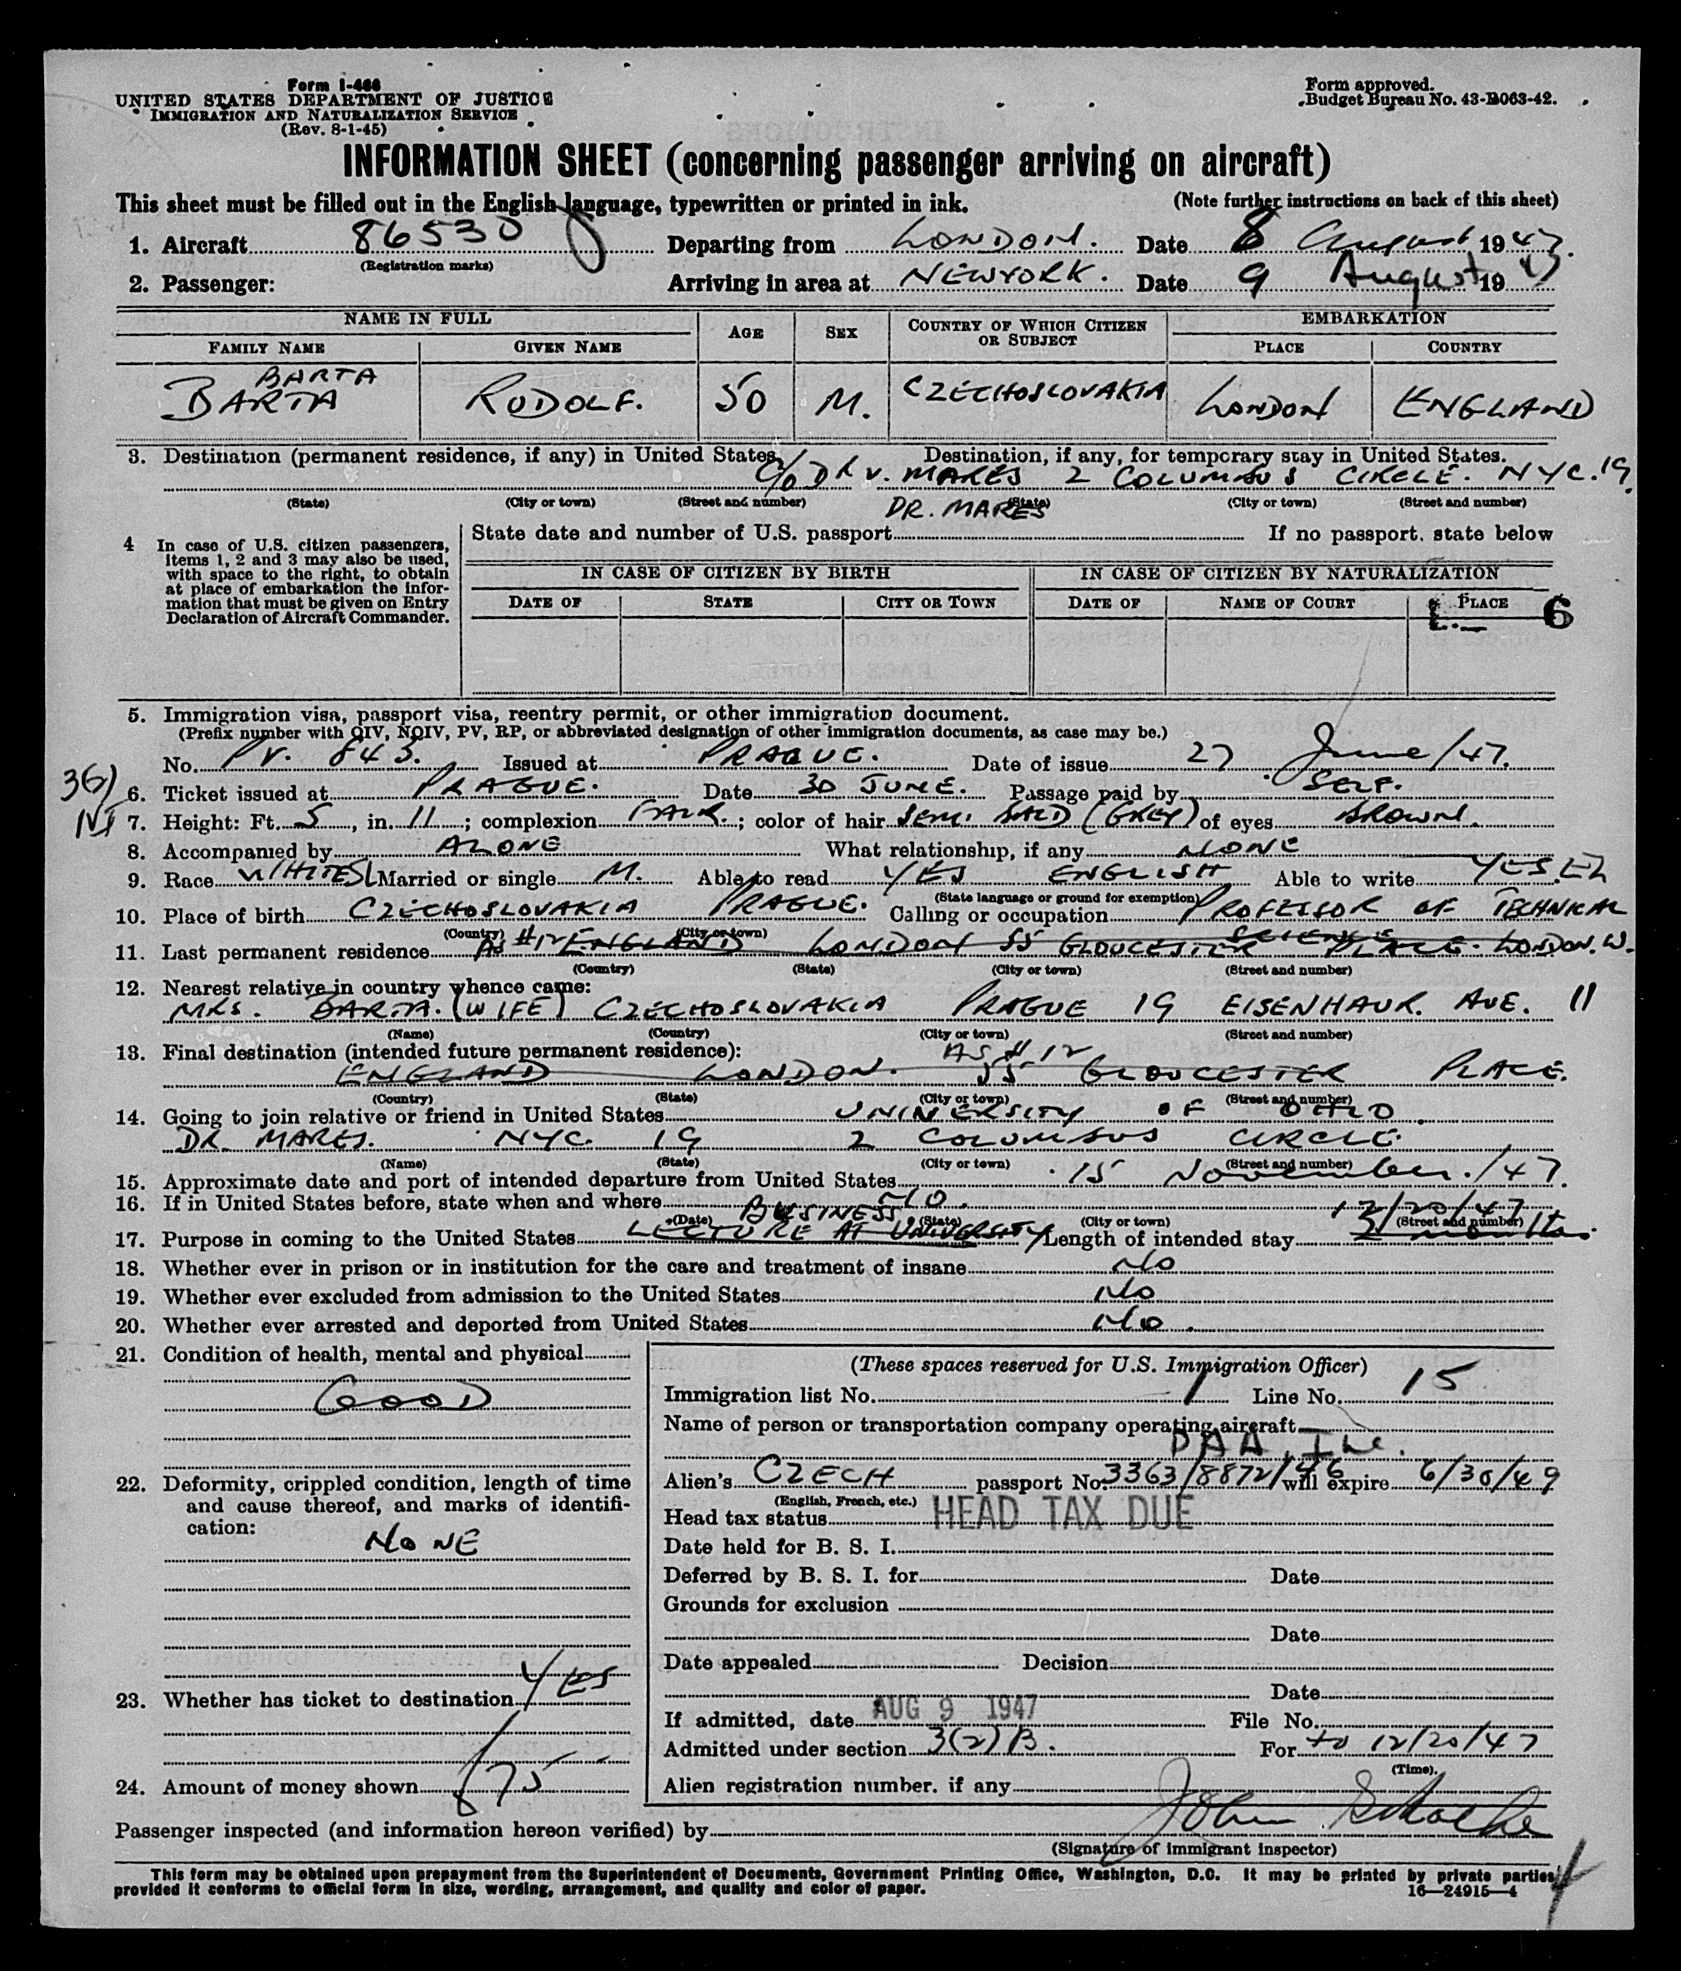 Form I-466
UNITED STATES DEPARTMENT OF JUSTICE
IMMIGRATION AND NATURALIZATION SERVICE
(Rev. 8-1-45)
Form approved.
Budget Bureau No. 43-R063-42.
INFORMATION SHEET (concerning passenger arriving on aircraft)
This sheet must be filled out in the English language, typewritten or printed in ink. (Note further instructions on back of this sheet)
1. Aircraft 86530 Departing from LONDON. Date 8 August 1947.
(Registration marks)
2. Passenger: Arriving in area at NEWYORK. Date 9 August 1947
NAME IN FULL AGE SEX COUNTRY OF WHICH CITIZEN OR SUBJECT EMBARKATION
FAMILY NAME GIVEN NAME PLACE COUNTRY
BARTA
BARTA RUDOLF. 50 M. CZECHOSLOVAKIA LONDON ENGLAND
3. Destination (permanent residence, if any) in United States Destination, if any, for temporary stay in United States.
C/O DR V. MARES 2 COLUMBUS CIRCLE. NYC. 19.
(State) (City or town) (Street and number) (State) (City or town) (Street and number)
DR. MARES
4 In case of U.S. citizen passengers, items 1, 2 and 3 may also be used, with space to the right, to obtain at place of embarkation the information that must be given on Entry Declaration of Aircraft Commander.
State date and number of U.S. passport If no passport, state below
IN CASE OF CITIZEN BY BIRTH IN CASE OF CITIZEN BY NATURALIZATION
DATE OF STATE CITY OR TOWN DATE OF NAME OF COURT PLACE 6
5. Immigration visa, passport visa, reentry permit, or other immigration document.
(Prefix number with QIV, NQIV, PV, RP, or abbreviated designation of other immigration documents, as case may be.)
No. PV. 843. Issued at PRAGUE. Date of issue 27 June/47.
6. Ticket issued at PRAGUE. Date 30 JUNE. Passage paid by SELF.
7. Height: Ft. 5, in. 11; complexion FAIR.; color of hair SEMI BALD (GREY) of eyes BROWN.
8. Accompanied by ALONE What relationship, if any NONE
9. Race WHITE Married or single M. Able to read YES ENGLISH Able to write YES.
(State language or ground for exemption)
10. Place of birth CZECHOSLOVAKIA PRAGUE. Calling or occupation PROFESSOR OF TECHNICAL
SCIENCE
(Country) (City or town)
11. Last permanent residence AS #12 ENGLAND LONDON 55 GLOUCESTER PLACE. LONDON. W.
(Country) (State) (City or town) (Street and number)
12. Nearest relative in country whence came:
MRS. BARTA. (WIFE) CZECHOSLOVAKIA PRAGUE 19 EISENHAUR. AVE. 11
(Name) (Country) (City or town) (Street and number)
13. Final destination (intended future permanent residence): AS #12
ENGLAND LONDON. 55 GLOUCESTER PLACE.
(Country) (State) (City or town) (Street and number)
14. Going to join relative or friend in United States UNIVERSITY OF OHIO
DR. MARES. NYC. 19 2 COLUMBUS CIRCLE.
(Name) (State) (City or town) (Street and number)
15. Approximate date and port of intended departure from United States 15 November./47.
16. If in United States before, state when and where NO.
(Date) (State) (City or town) (Street and number)
BUSINESS 12/20/47
17. Purpose in coming to the United States LECTURE AT UNIVERSITY Length of intended stay 3 months.
18. Whether ever in prison or in institution for the care and treatment of insane No
19. Whether ever excluded from admission to the United States No
20. Whether ever arrested and deported from United States No.
21. Condition of health, mental and physical
GOOD
22. Deformity, crippled condition, length of time and cause thereof, and marks of identification:
NONE
23. Whether has ticket to destination YES
24. Amount of money shown 75
(These spaces reserved for U.S. Immigration Officer)
Immigration list No. 1 Line No. 15
Name of person or transportation company operating aircraft
PAA, Inc.
Alien's CZECH passport No. 3363/8872/46 will expire 6/30/49
(English, French, etc.)
Head tax status HEAD TAX DUE
Date held for B. S. I.
Deferred by B. S. I. for Date
Grounds for exclusion
Date
Date appealed Decision
Date
If admitted, date AUG 9 1947 File No.
Admitted under section 3(2)B. For to 12/20/47
(Time).
Alien registration number, if any
Passenger inspected (and information hereon verified) by John
(Signature of immigrant inspector)
This form may be obtained upon prepayment from the Superintendent of Documents, Government Printing Office, Washington, D.C. It may be printed by private parties
provided it conforms to official form in size, wording, arrangement, and quality and color of paper. 16—24915-4